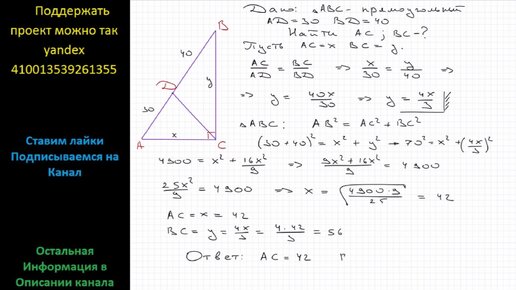 Поддержать
проект можно так
yandex
410013539261355
Ставим лайки
Подписываемся на
Канал
Остальная
Информация в
Описании канала
B
40
D
y
30
A
x
C
Дано: △ABC - прямоугольный
AD=30 BD=40
Найти AC; BC-?
Пусть AC=x BC=y.
AC/AD = BC/BD => x/30 = y/40 =>
=> y = 40x/30 => y = 4x/3
△ABC: AB² = AC² + BC²
(30+40)² = x² + y² → 70² = x² + (4x/3)²
4900 = x² + 16x²/9 => 9x² + 16x²/9 = 4900
25x²/9 = 4900 => x = √(4900·9/25) = 42
AC = x = 42
BC = y = 4x/3 = 4·42/3 = 56
Ответ: AC = 42